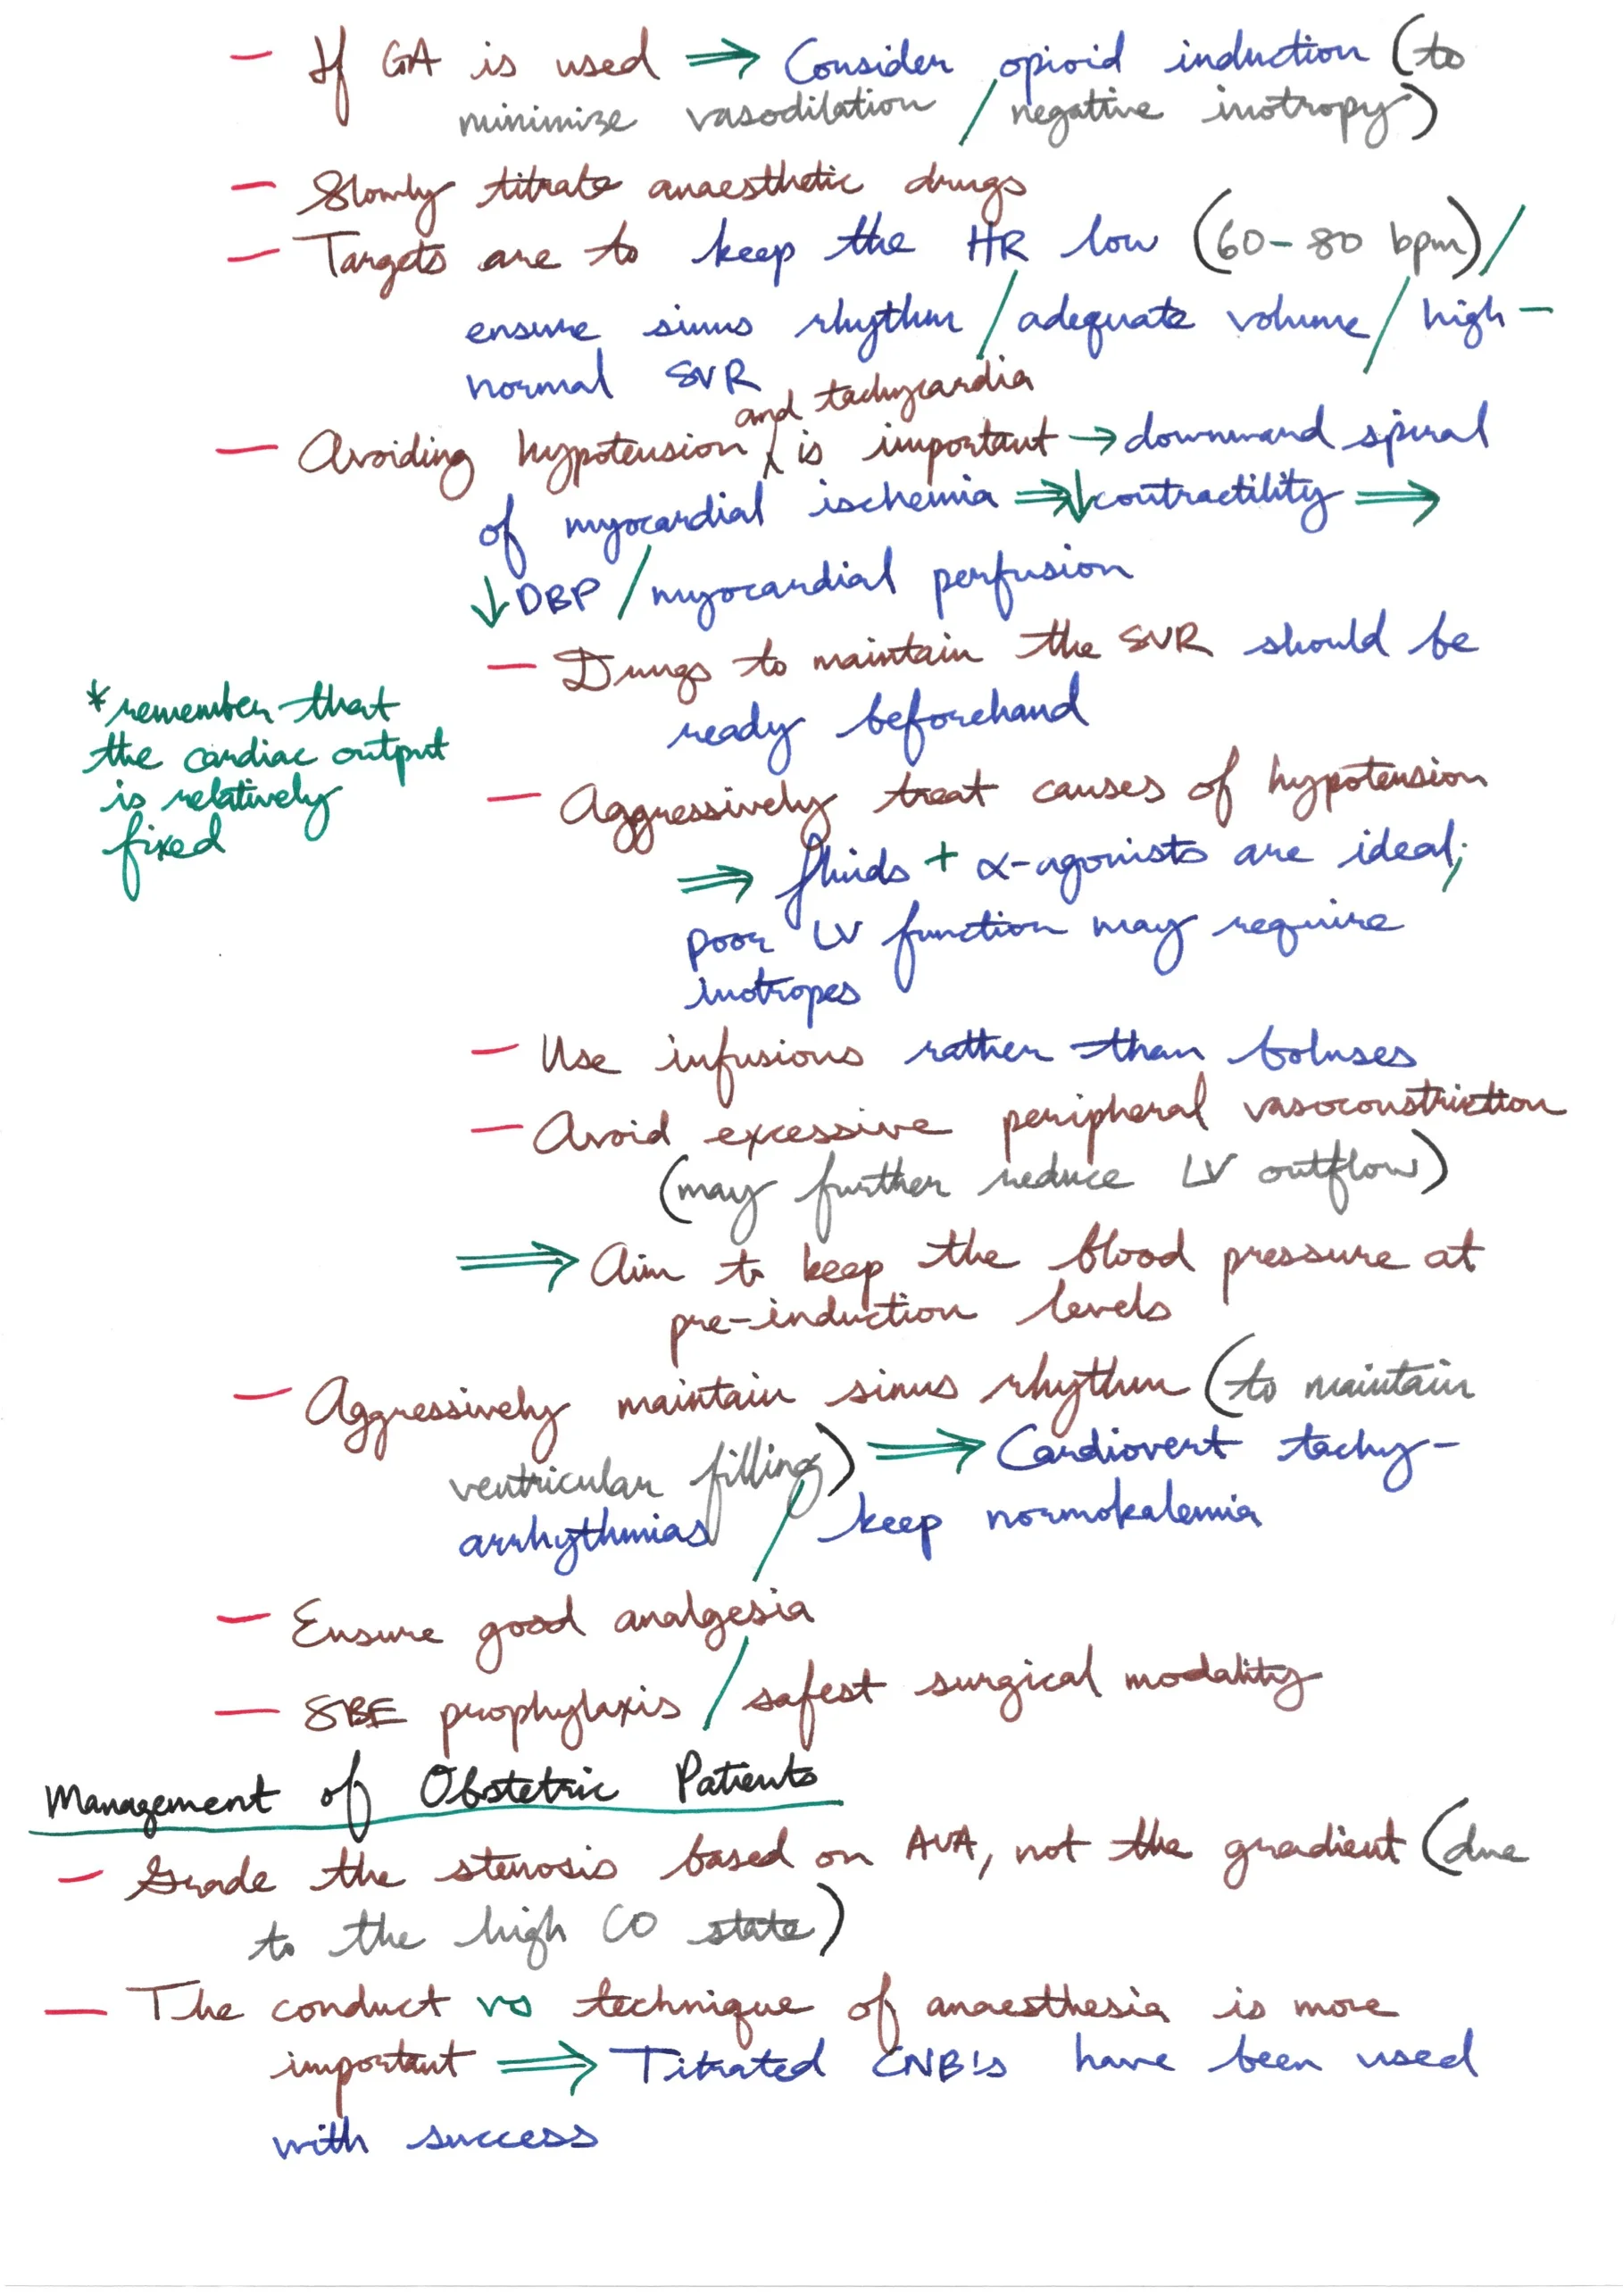 — If GA is used ⇒ Consider opioid induction (to
minimize vasodilation / negative inotropy)
— Slowly titrate anaesthetic drugs
— Targets are to keep the HR low (60-80 bpm) /
ensure sinus rhythm / adequate volume / high-
normal SVR
and tachycardia
— Avoiding hypotension ⁁ is important → downward spiral
of myocardial ischemia ⇒ ↓contractility ⇒
↓ DBP / myocardial perfusion
— Drugs to maintain the SVR should be
ready beforehand
* remember that
the cardiac output
is relatively
fixed
— Aggressively treat causes of hypotension
⇒ fluids + α-agonists are ideal;
poor LV function may require
inotropes
— Use infusions rather than boluses
— Avoid excessive peripheral vasoconstriction
(may further reduce LV outflow)
⇒ Aim to keep the blood pressure at
pre-induction levels
— Aggressively maintain sinus rhythm (to maintain
ventricular filling) ⇒ Cardiovert tachy-
arrhythmias / keep normokalemia
— Ensure good analgesia
— SBE prophylaxis / safest surgical modality
Management of Obstetric Patients
— Grade the stenosis based on AVA, not the gradient (due
to the high CO state)
— The conduct vs technique of anaesthesia is more
important ⇒ Titrated CNB's have been used
with success